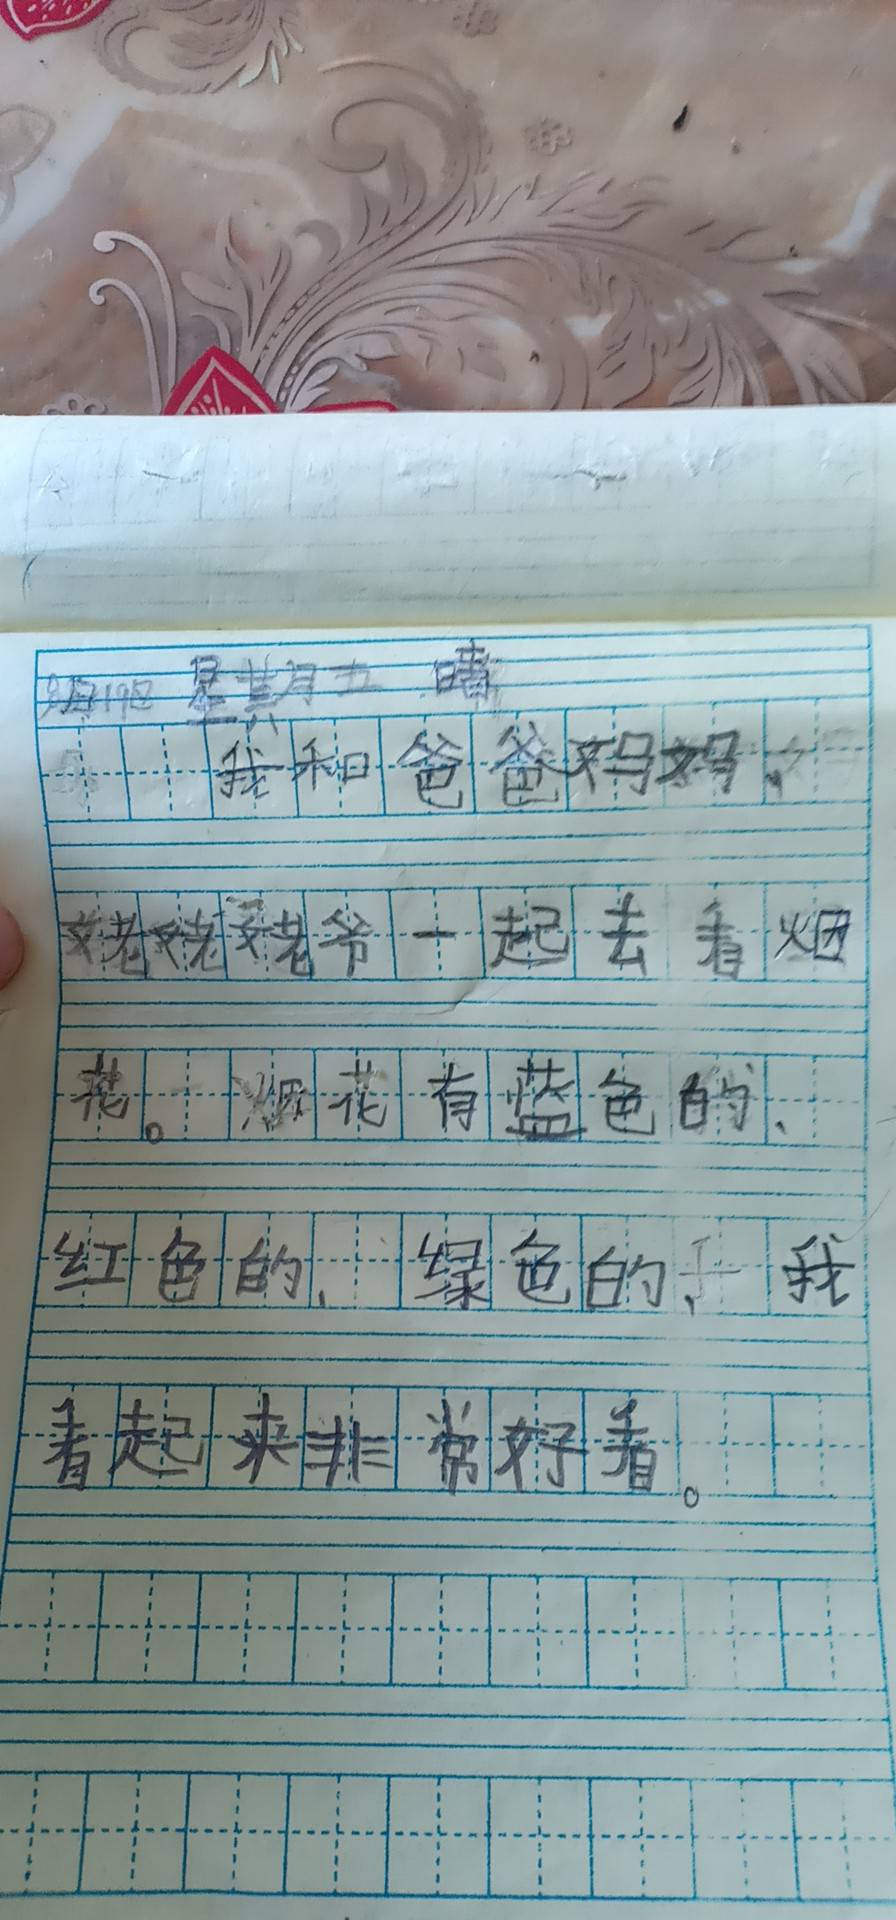 月19日 星期五 晴
我和爸爸妈妈、
姥姥姥爷一起去看烟
花。烟花有蓝色的、
红色的、绿色的、我
看起来非常好看。